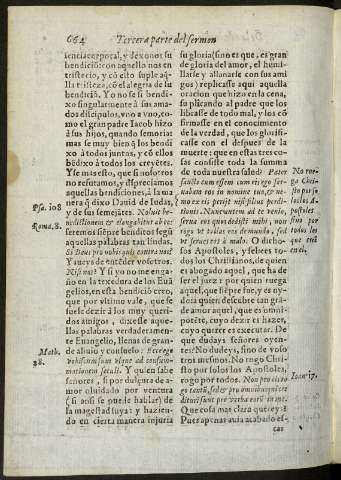 664 Tercera parte del sermon
tencia corporal, y dexonos su
bendicion: con aquello nos en
tristecio, y cõ esto suple aq̃
lla tristeza, cõ el alegria de su
bendiciõ. Y no se si bendi-
xo singularmente à sus ama-
dos discipulos, vno a vno, co-
mo el gran padre Iacob hizo
à sus hijos, quando
se muy bien q̃ los bendi
xo à todos juntos, y cõ ellos
bẽdixo à todos los creyẽtes.
Y se mas esto, que si nosotros
no rehusamos, y despreciamos
aquellas bendiciones, à la ma
nera q̃ dixo Dauid de Iudas,
y de sus semejãtes. Noluit be-
nedictionẽ & elongabitur ab eo:
seremos siẽpre benditos segũ
aquellas palabras tan lindas.
Si Deus pro nobis quis contra nos?
Y auays de entẽder vosotros.
Nisi nos? Y si yo no me enga-
ño en la texedura de los Euã
gelios, en esta bendiciõ cero,
que por vltimo vale, que se
suele dezir à los muy queri-
dos amigos, dixesse aque-
llas palabras verdaderamen-
te Euangelio, llenas de gran-
de aliuio y consuelo: Et ecce ego
vobiscum sum vsque ad consum-
mationem seculi. Y quien sabe
señores, si por dulçura de a-
mor oluidado por ventura
(si ansi se puede hablar) de
la magestad suya: y hazien-
do en cierta manera injuria
Psa. 108
Roma. 8.
Math.
28.
su gloria (sino es que, es gran
de gloria del amor, el humi-
llarse y allanarse con sus ami
gos) replicasse aqui aquella
oracion que hizo en la cena,
suplicando al padre que los
librasse de todo mal, y los cõ-
firmasse en el conocimiento
de la verdad, que los glorifi-
casse con el despues de la
muerte: que en estas tres co-
sas consiste toda la summa
de toda nuestra salud? Pater
sancte cum essem cum eis ego ser-
uabam eos in nomine tuo, & ne-
mo ex eis perijt nisi filius perdi-
tionis. Nunc autem ad te venio,
serua eos quos dedisti mihi, non
rogo vt tollas eos de mundo, sed
vt serues eos à malo. O dicho-
sos Apostoles, y felices to-
dos los Christianos, de quien
es abogado aquel, que ha de
ser el juez: por quien ruega
aquel, que siẽpre fue, y es oy-
do: a quien descubre tan gran-
de amor aquel, que es omni-
potente, cuyo dezir es hazer,
cuyo querer es executar. De
que dudays señores oyen-
tes? No dudeys, sino de voso
tros mesmos. No rogo Chri-
sto por solos los Apostoles,
rogo por todos. Non pro eis ro
go tantũ, sed & pro omnibus qui cre
dituri sunt per verba eorũ in me.
Que cosa mas clara quereys?
Pues apenas auia acabado es-
cas
No ro-
go Chri-
sto por so
los los A-
postoles
sino por to
dos los que
creẽ
en el.
Ioan. 17.